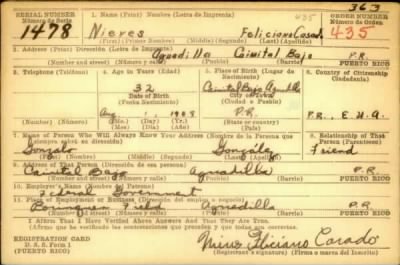 363
SERIAL NUMBER
Número de Serie
1. NAME (Print) Nombre (Letra de Imprenta)
435
ORDER NUMBER
Número de Orden
1478
Nieves
Feliciano Casad
435
(First) (Primer) (Middle) (Segundo) (Last) (Apellido)
2. ADDRESS (Print) Dirección (Letra de Imprenta)
Aguadilla Caimital Bajo P.R.
(Number and street) (Número y calle) (Town) (Ciudad o pueblo)
PUERTO RICO
3. TELEPHONE (Teléfono)
4. AGE IN YEARS (Edad)
5. PLACE OF BIRTH (Lugar de Nacimiento)
6. COUNTRY OF CITIZENSHIP
Ciudadanía
32
Caimital Bajo Aguadilla
DATE OF BIRTH
(Fecha Nacimiento)
(Town or county)
(Ciudad o Pueblo)
Aug 1908
P.R.
P.R., E.U.A.
(Mo.) (Day) (Yr.)
(State or country)
7. NAME OF PERSON WHO WILL ALWAYS KNOW YOUR ADDRESS (Nombre de la Persona que
siempre sabrá su dirección)
8. RELATIONSHIP OF THAT
PERSON (Parentesco)
Gonzalo González Friend
9. ADDRESS OF THAT PERSON (Dirección de esa persona)
Caimital Bajo Aguadilla P.R.
(Number and street) (Número y calle) (Town) (Ciudad o pueblo)
PUERTO RICO
10. EMPLOYER'S NAME (Nombre del Patrono)
Federal Government
11. PLACE OF EMPLOYMENT OR BUSINESS (Dirección del empleo o negocio)
Borinquen Field Aguadilla P.R.
(Number and street) (Número y calle) (Town) (Ciudad o pueblo)
PUERTO RICO
I AFFIRM THAT I HAVE VERIFIED ABOVE ANSWERS AND THAT THEY ARE TRUE.
(Afirmo que he verificado las contestaciones que preceden y que todas son correctas)
REGISTRATION CARD
D. S. S. Form 1
Feliciano Casado
(Registrant's signature) (Firma o marca del Inscrito)